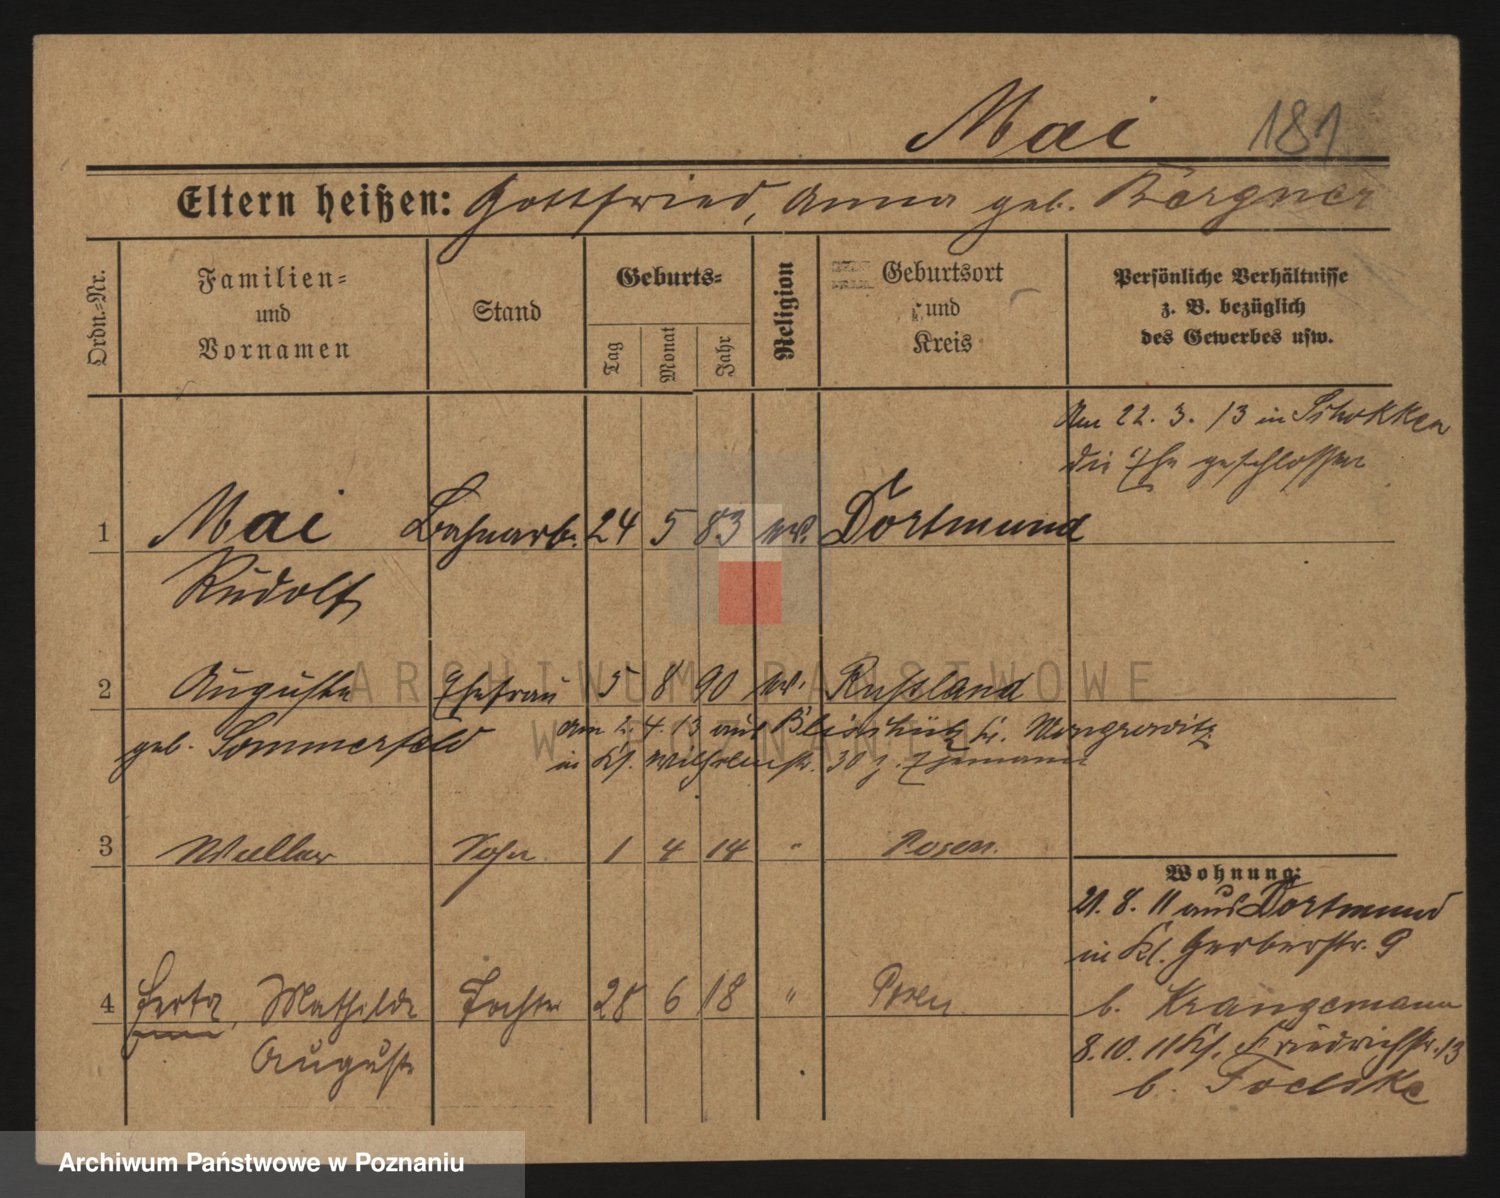 Mai 181
Eltern heißen: Gottfried, Anna geb. Bärgner
Ordn.-Nr.
Familien-
und
Vornamen
Stand
Geburts-
Tag
Monat
Jahr
Religion
Geburtsort
und
Kreis
Persönliche Verhältnisse
z. B. bezüglich
des Gewerbes usw.
Am 22. 3. 13 in Schokken
die Ehe geschlossen
1 Mai Bahnarb. 24 5 83 ev. Dortmund
Rudolf
2 Auguste Ehefrau 5 8 90 ev. Russland
geb. Sommerfeld
am 2. 4. 13 aus Kr. Wongrowitz
in Ks. Wilhelmstr. 30 z. Ehemann
3 Walter Sohn 1 4 14 " Posen
Wohnung:
21. 8. 11 aus Dortmund
in Kl. Gerberstr. 9
4 Herta, Mathilde Tochter 28 6 18 " Posen
Auguste
b. Krangemann
8. 10. 11 Ks. Friedrichstr. 13
b.
ARCHIWUM PAŃSTWOWE
W POZNANIU
Archiwum Państwowe w Poznaniu